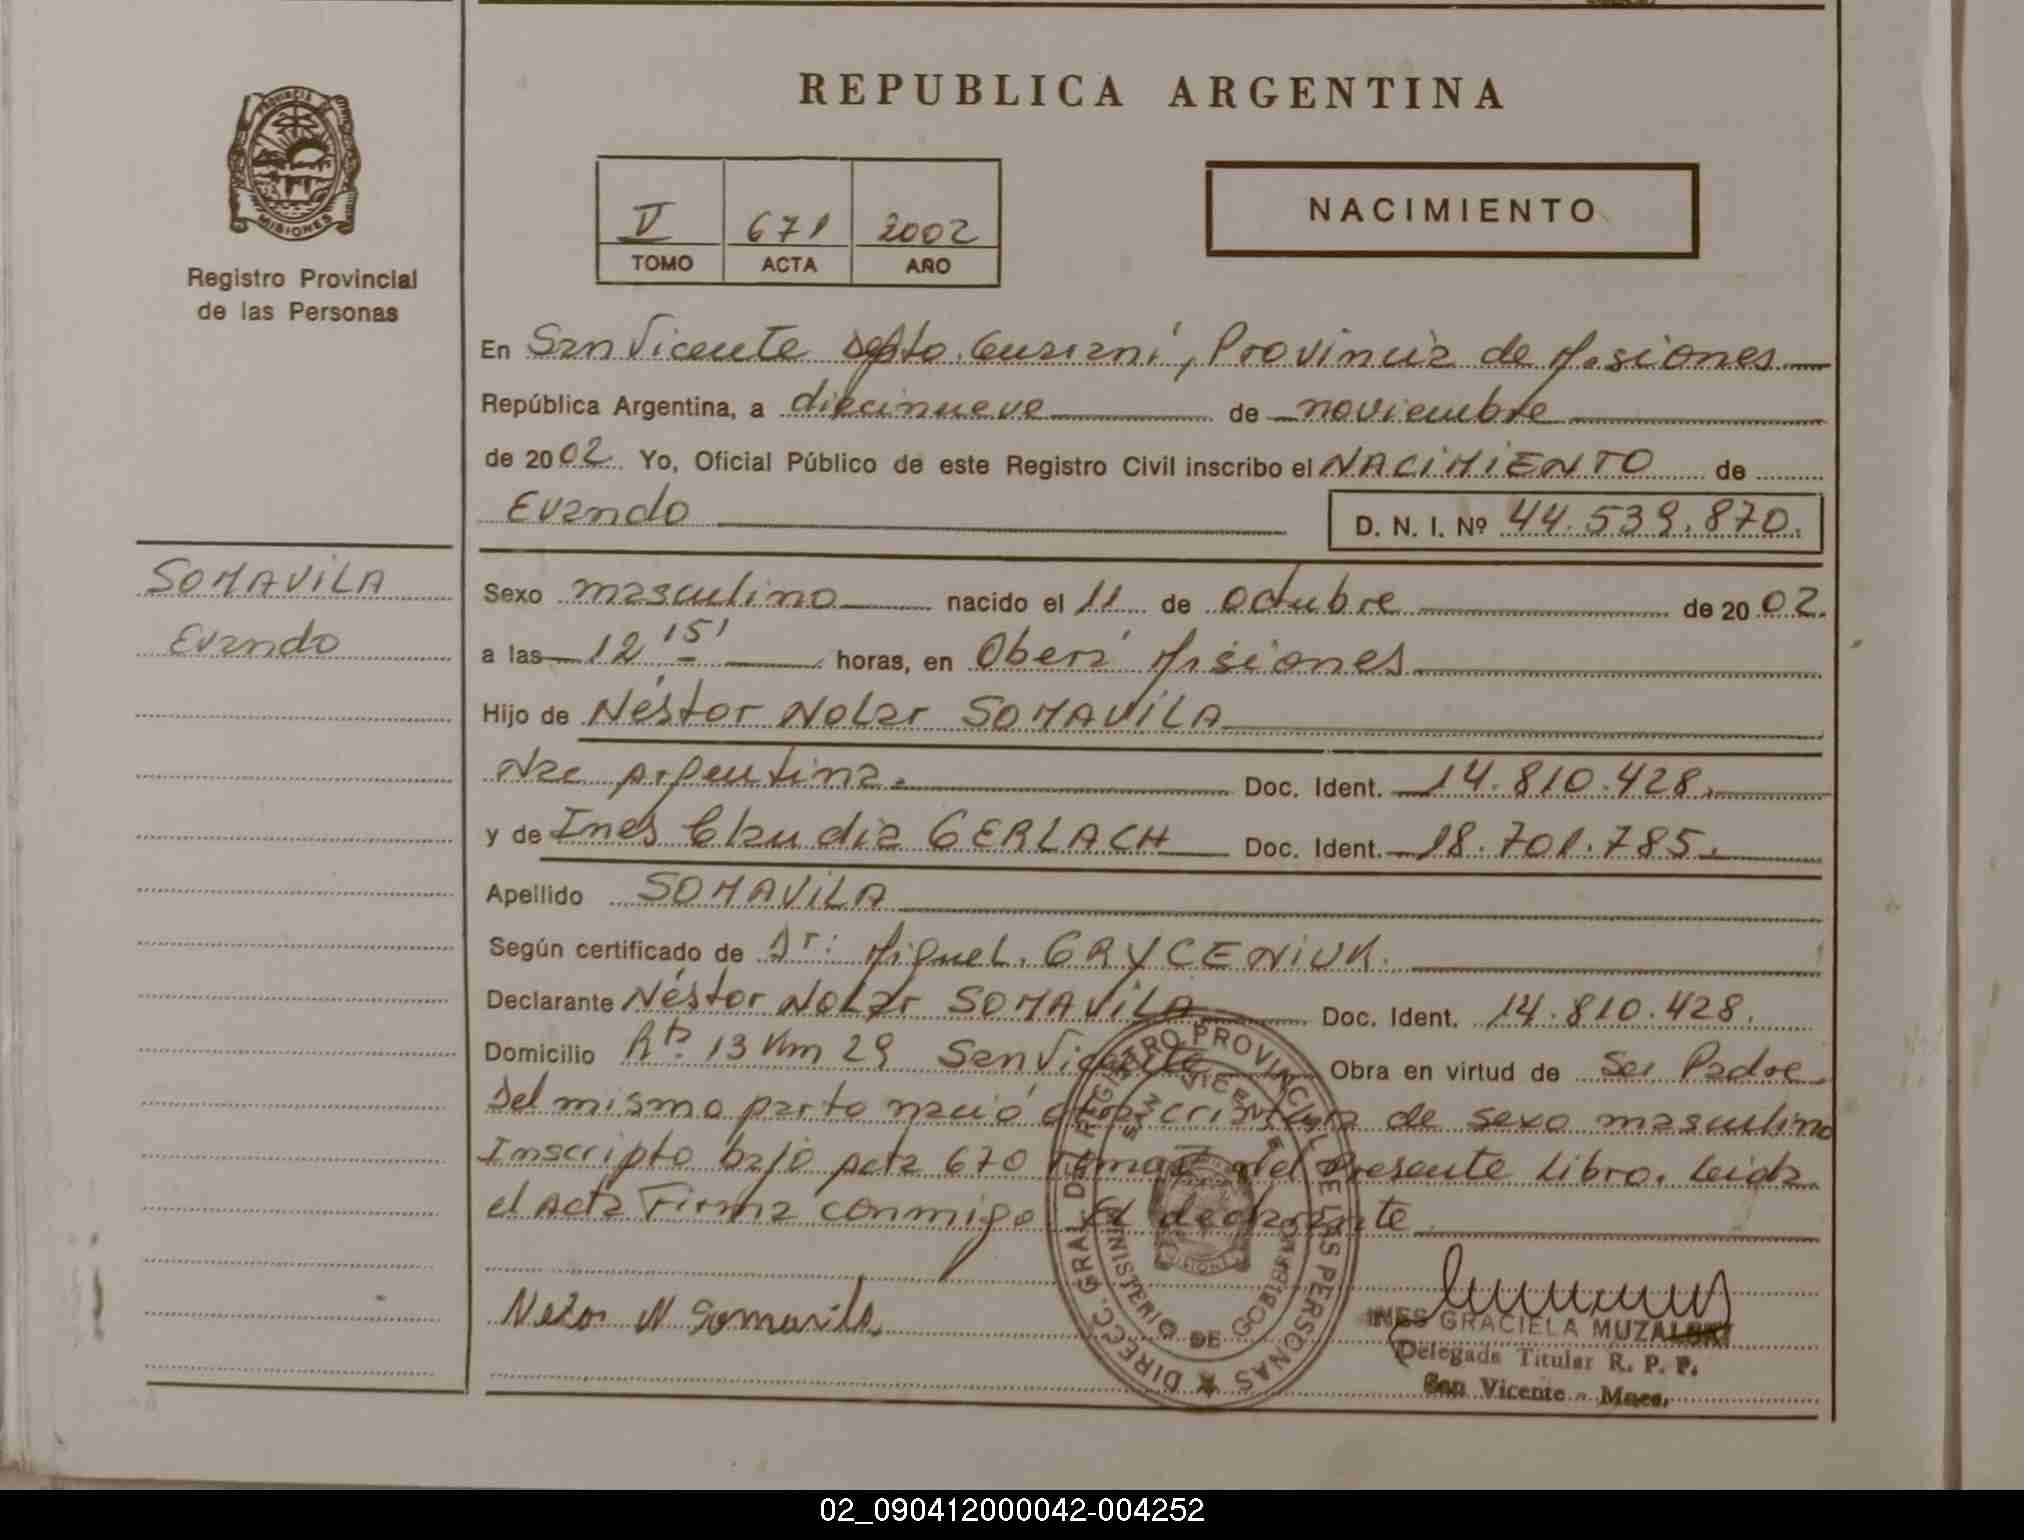 REPUBLICA ARGENTINA
PROVINCIA DE
MISIONES
Registro Provincial
de las Personas
V 671 2002
TOMO ACTA AÑO
NACIMIENTO
En San Vicente Dpto. Guaraní, Provincia de Misiones
República Argentina, a diecinueve de noviembre
de 2002. Yo, Oficial Público de este Registro Civil inscribo el NACIMIENTO de
Evando D. N. I. Nº 44.539.870.
SOMAVILA
Evando
Sexo masculino nacido el 11 de octubre de 2002.
a las 12 15' horas, en Oberá Misiones
Hijo de Néstor Nolar SOMAVILA
Nac Argentina. Doc. Ident. 14.810.428.
y de Ines Claudia GERLACH Doc. Ident. 18.701.785.
Apellido SOMAVILA
Según certificado de Dr: Miguel. GRYCENIUK.
Declarante Néstor Nolar SOMAVILA Doc. Ident. 14.810.428.
Domicilio Rta. 13 Km 29 San Vicente Obra en virtud de Ser Padre.
Del mismo parto nació otra criatura de sexo masculino
Inscripto bajo acta 670 tomo V del Presente Libro. Leída
el Acta Firma conmigo El declarante
N. Somavila
DIRECC. GRAL. DE REGISTRO PROVINCIAL DE LAS PERSONAS
SAN VICENTE
MISIONES
MINISTERIO DE GOBIERNO
INES GRACIELA MUZALSKI
Delegada Titular R. P. P.
San Vicente - Mnes.
02_090412000042-004252